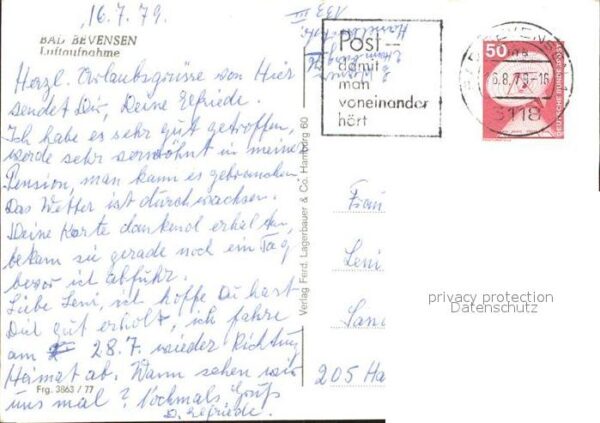 16.7.79.
BAD BEVENSEN
Luftaufnahme
Herzl. Urlaubsgrüsse von Hier
sendet Dir, Deine Elfriede.
Ich habe es sehr gut getroffen,
werde sehr verwöhnt in meiner
Pension, man kann es gebrauchen
Das Wetter ist durchwachsen.
Deine Karte dankend erhalten,
bekam sie gerade noch ein Tag
bevor ich abfuhr.
Liebe Leni, ich hoffe Du hast
Dich gut erholt, ich fahre
am 28.7. wieder Richtung
Heimat ab. Wann sehen wir
uns mal? Nochmals Gruß
D. Elfriede.
Frg. 3863 / 77
Verlag Ferd. Lagerbauer & Co. Hamburg 60
Post –
damit
man
voneinander
hört
50
DEUTSCHE BUNDESPOST
-16
3118
Frau
Leni
205 Ha
privacy protection
Datenschutz